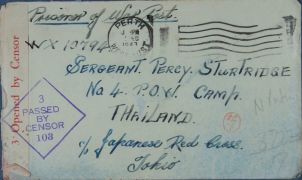 Prisoner of War Post.
PERTH
1943
WX10794
SERGEANT PERCY STURTRIDGE
No 4 P.O.W. CAMP.
THAILAND.
c/o Japanese Red Cross.
Tokio
3 Opened by Censor
3
PASSED BY
CENSOR
108